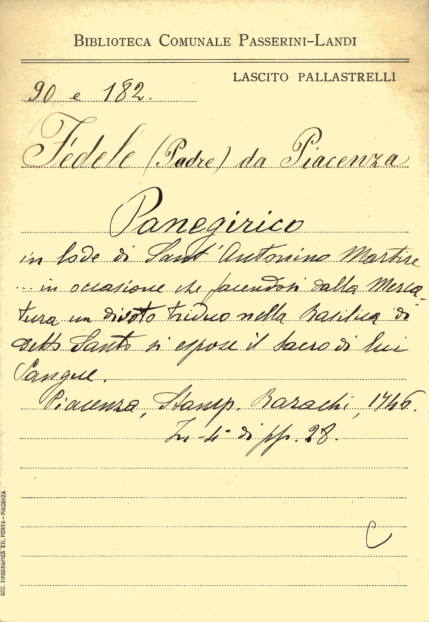 BIBLIOTECA COMUNALE PASSERINI-LANDI
LASCITO PALLASTRELLI
90 e 182.
Fedele (Padre) da Piacenza
Panegirico
in lode di Sant'Antonino Martire
... in occasione che facendosi dalla Merca-
tura un divoto triduo nella Basilica di
detto Santo si espose il sacro di lui
Sangue.
Piacenza, Stamp. Bazachi, 1746.
In-4° di pp. 28.
C
SOC. TIPOGRAFICA ED. PORTA - PIACENZA